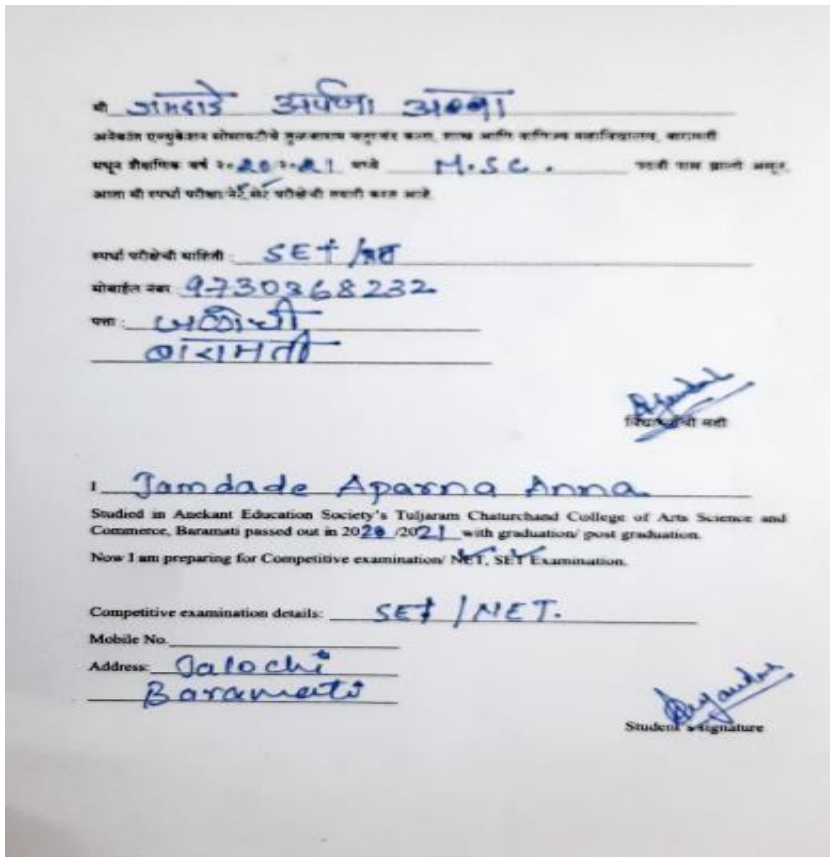 मी जामदाडे अर्पणा अण्णा
अनेकांत एज्युकेशन सोसायटीचे तुळजाराम चतुरचंद कला, शास्त्र आणि वाणिज्य महाविद्यालय, बारामती
मधून शैक्षणिक वर्ष २०20/२०21 मध्ये M.S.C. पदवी पास झालो असून,
आता मी स्पर्धा परीक्षा/नेट, सेट परीक्षेची तयारी करत आहे.
स्पर्धा परीक्षेची माहिती : SET /नेट
मोबाईल नंबर 9730368232
पत्ता : जळोची
बारामती
विद्यार्थ्याची सही
I Jamdade Aparna Anna
Studied in Anekant Education Society's Tuljaram Chaturchand College of Arts Science and
Commerce, Baramati passed out in 2020 /2021 with graduation/ post graduation.
Now I am preparing for Competitive examination/ NET, SET Examination.
Competitive examination details: SET / NET.
Mobile No.
Address: Jalochi
Baramati
Student's signature